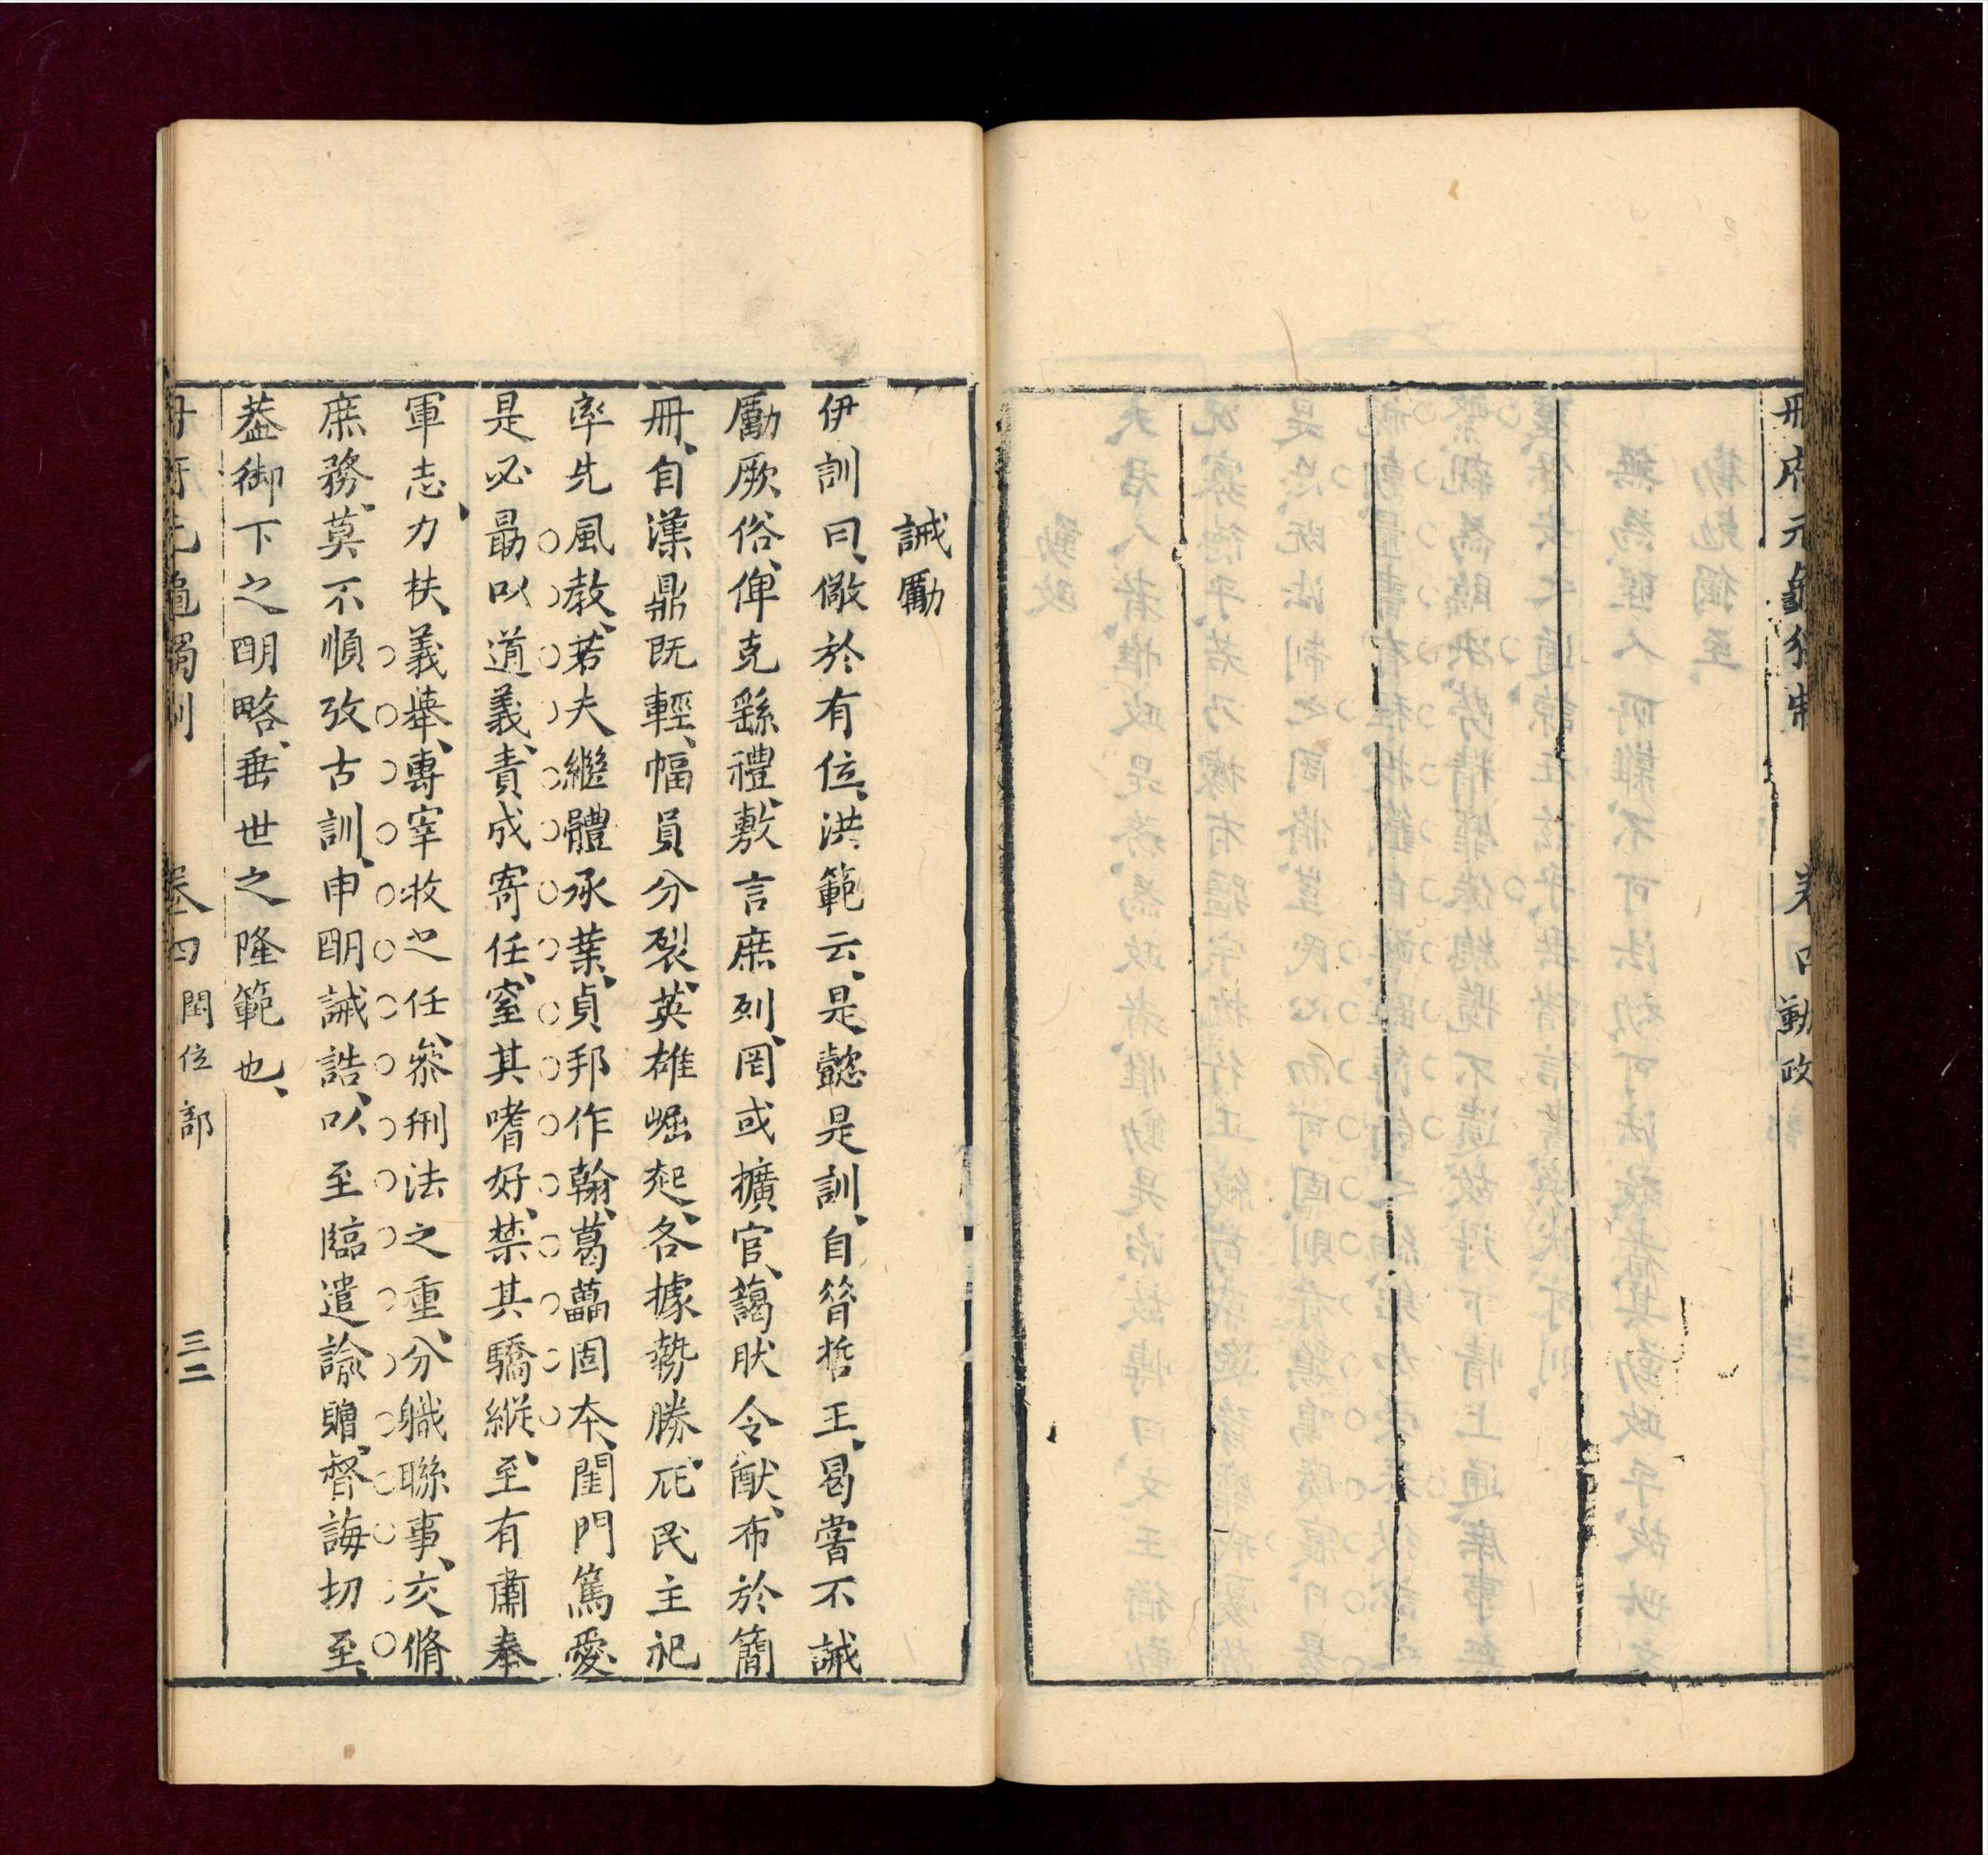 冊府元龜獨制 卷四 勤政
誡勵
伊訓曰、儆於有位、洪範云、是懿是訓、自昝哲王、曷嘗不誡
勵厥俗、俾克繇禮、敷言庶列、罔或擴官、藹肰令猷、布於簡
冊、自漢鼎既輕、幅員分裂、英雄崛起、各據勢勝、庇民主祀
率先風教、若夫繼體承業、貞邦作翰、葛藟固本、閨門篤愛
是必勗以道義、責成寄任、窒其嗜好、禁其驕縱、至有肅奉
軍志、力扶義舉、專宰牧之任、叅刑法之重、分職聯事、交脩
庶務、莫不順攷古訓、申明誡誥、以至臨遣諭贈、督誨切至、
葢御下之明略、垂世之隆範也、
冊府元龜獨制 卷四 閏位部 三二